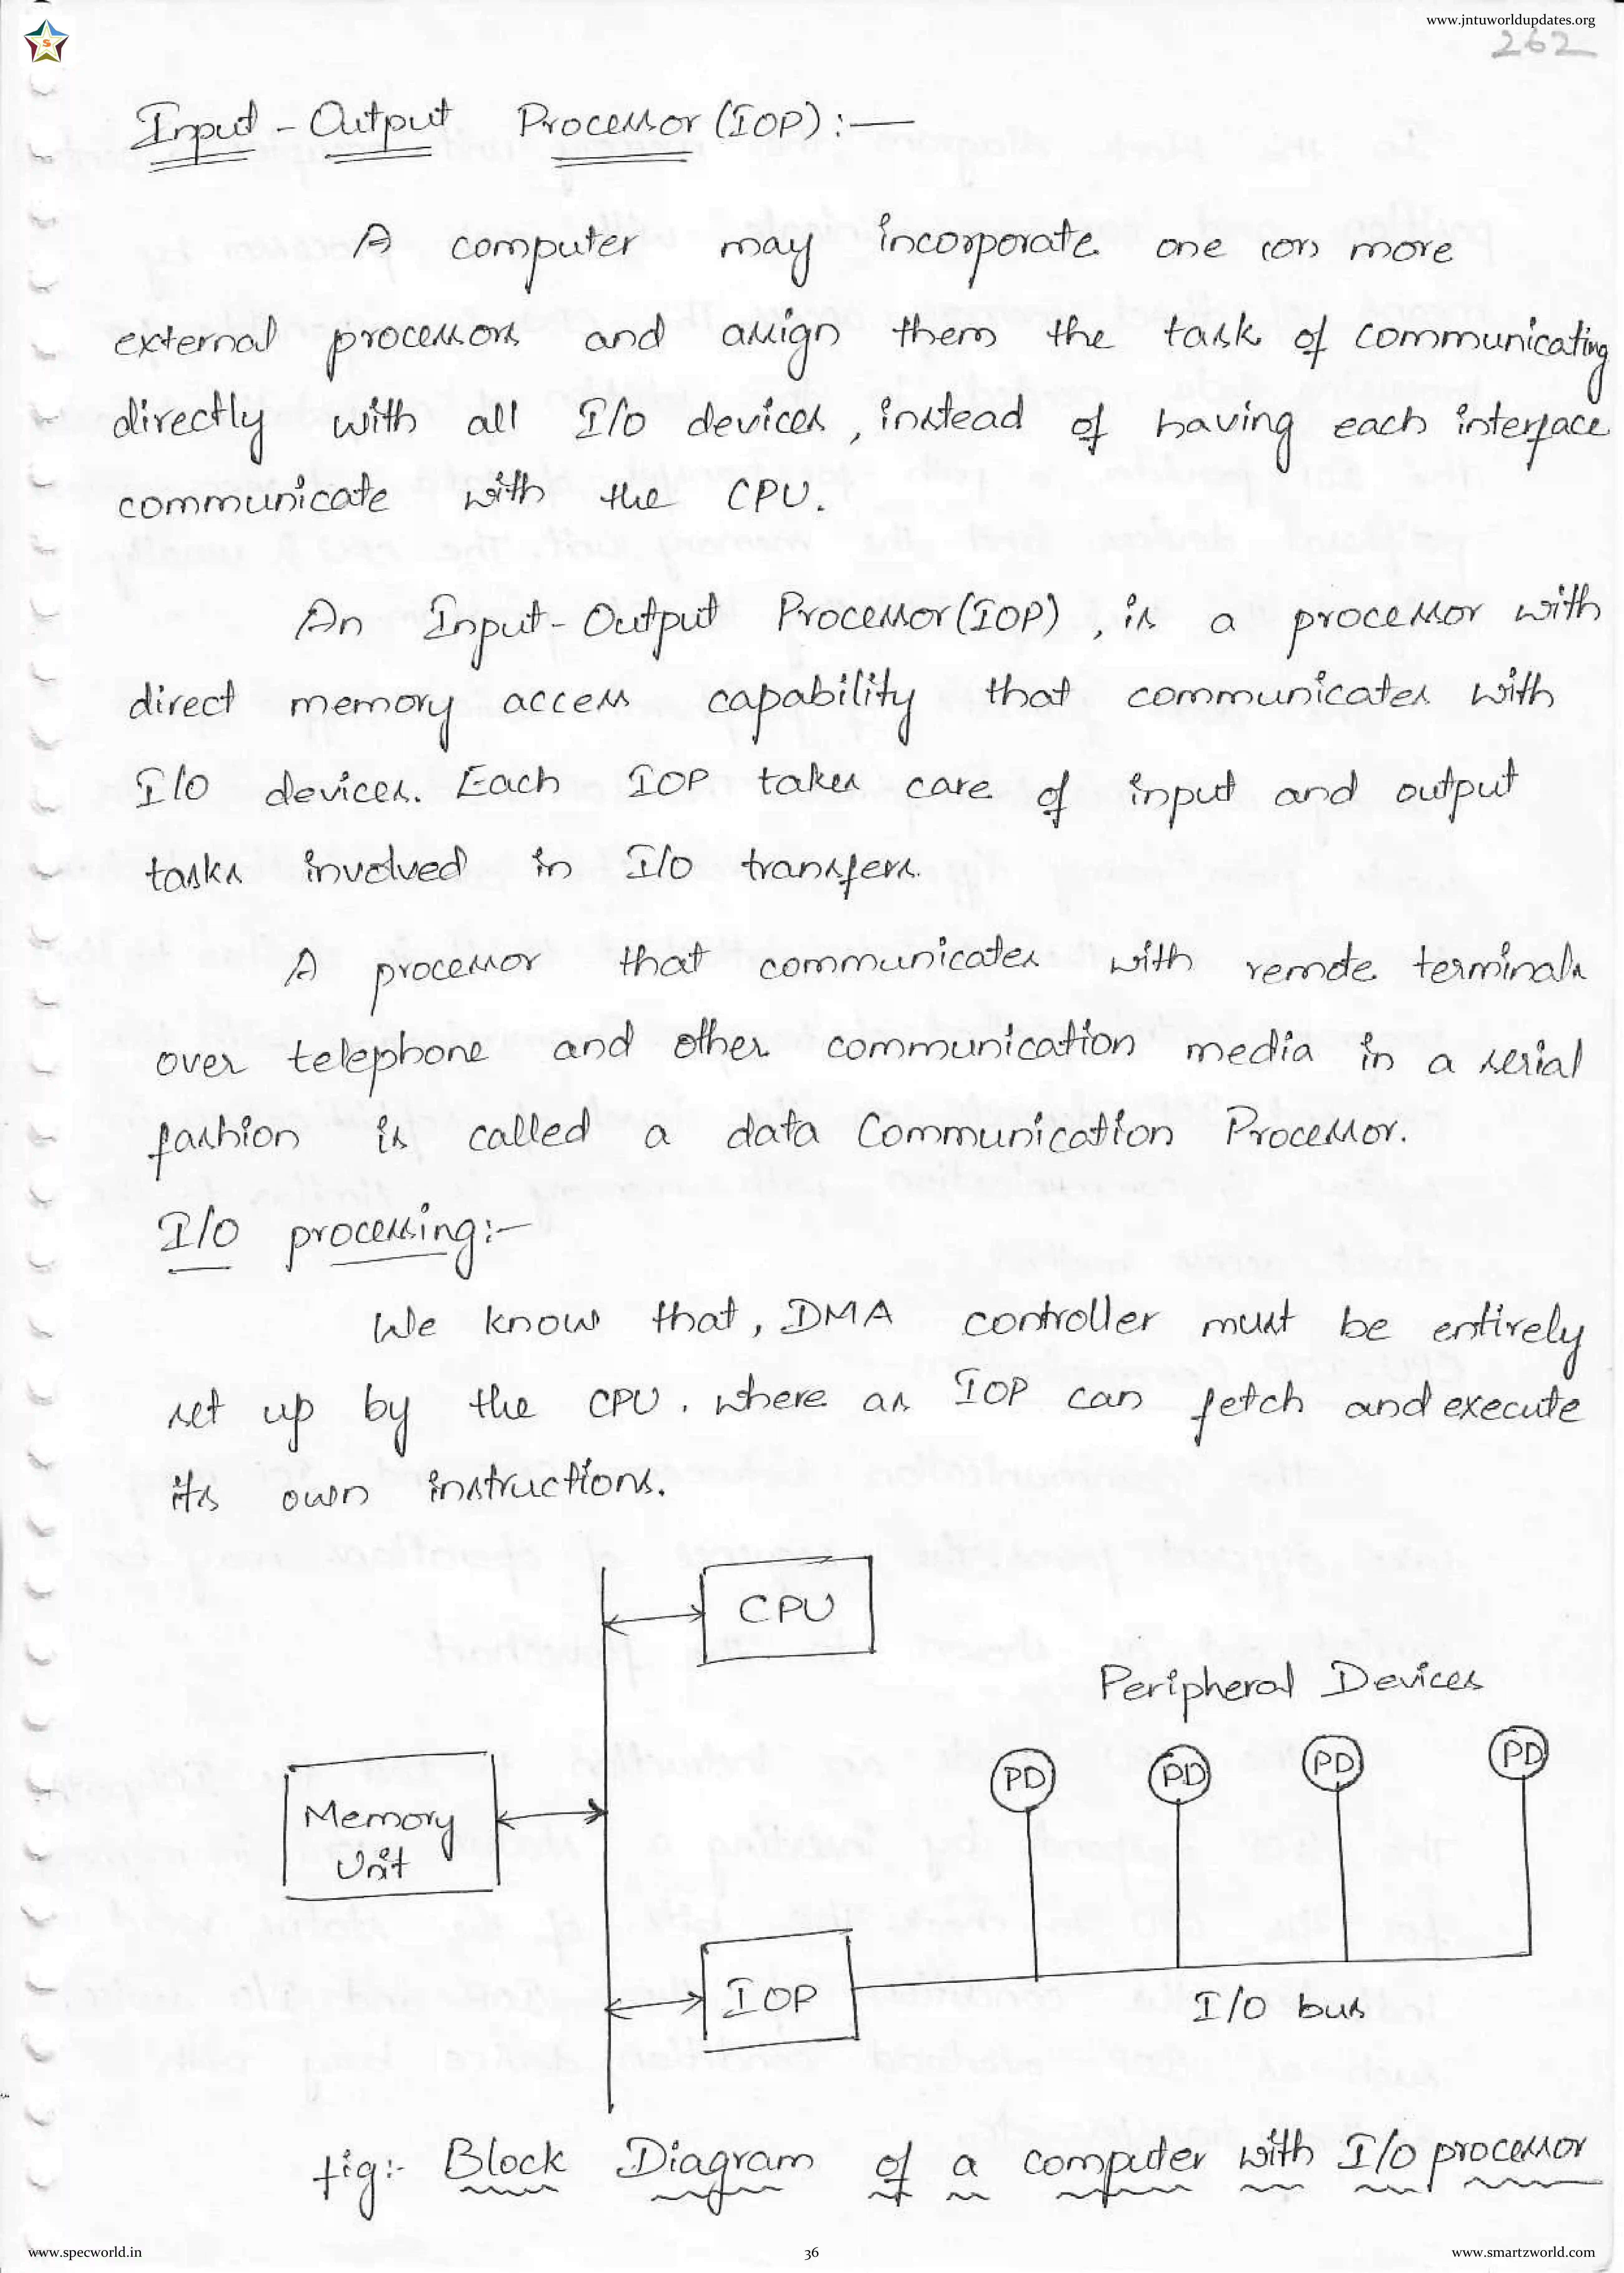 www.jntuworldupdates.org
262
Input - Output Processor (IOP) :-
A computer may incorporate one (or) more
external processors and assign them the task of communicating
directly with all I/O devices, instead of having each interface
communicate with the CPU.
An Input-Output Processor (IOP), is a processor with
direct memory access capability that communicates with
I/O devices. Each IOP takes care of input and output
tasks involved in I/O transfers.
A processor that communicates with remote terminals
over telephone and other communication media in a serial
fashion is called a data Communication Processor.
I/O processing:-
We know that, DMA controller must be entirely
set up by the CPU. where as IOP can fetch and execute
its own instructions.
CPU
Peripheral Devices
PD PD PD PD
Memory
Unit
IOP
I/O bus
fig:- Block Diagram of a computer with I/O processor
www.specworld.in 36 www.smartzworld.com